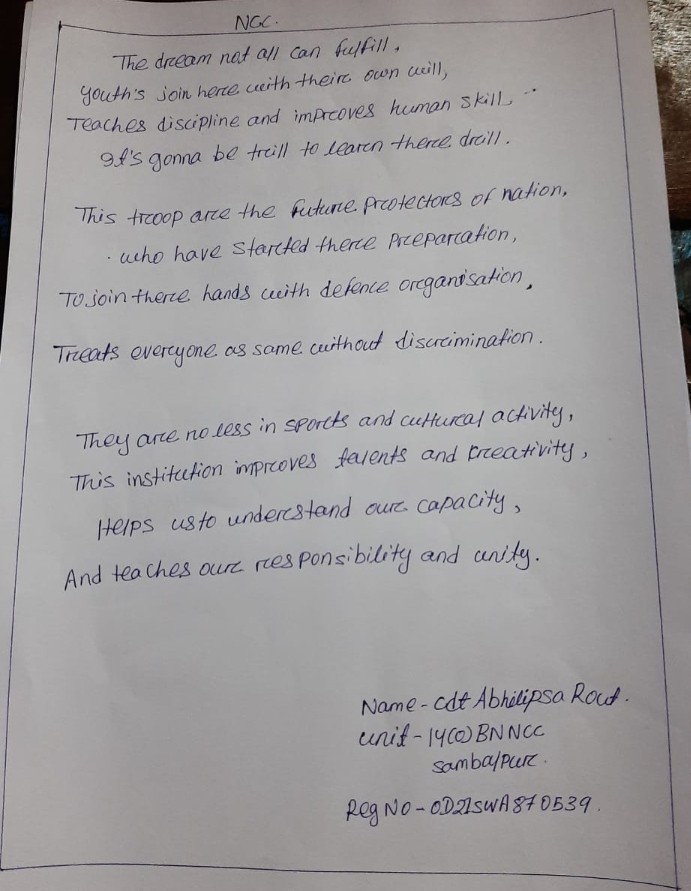 NCC.
The dream not all can fulfill,
Youth's join here with their own will,
Teaches discipline and improves human skill,
It's gonna be trill to learn there drill.
This troop are the future protectors of nation,
who have started there preparation,
To join there hands with defence organisation,
Treats everyone as same without discrimination.
They are no less in sports and cultural activity,
This institution improves talents and creativity,
Helps us to understand our capacity,
And teaches our responsibility and unity.
Name - Cdt Abhilipsa Rout.
Unit - 14(O) BN NCC
Sambalpur.
Reg No - OD21SWA870539.